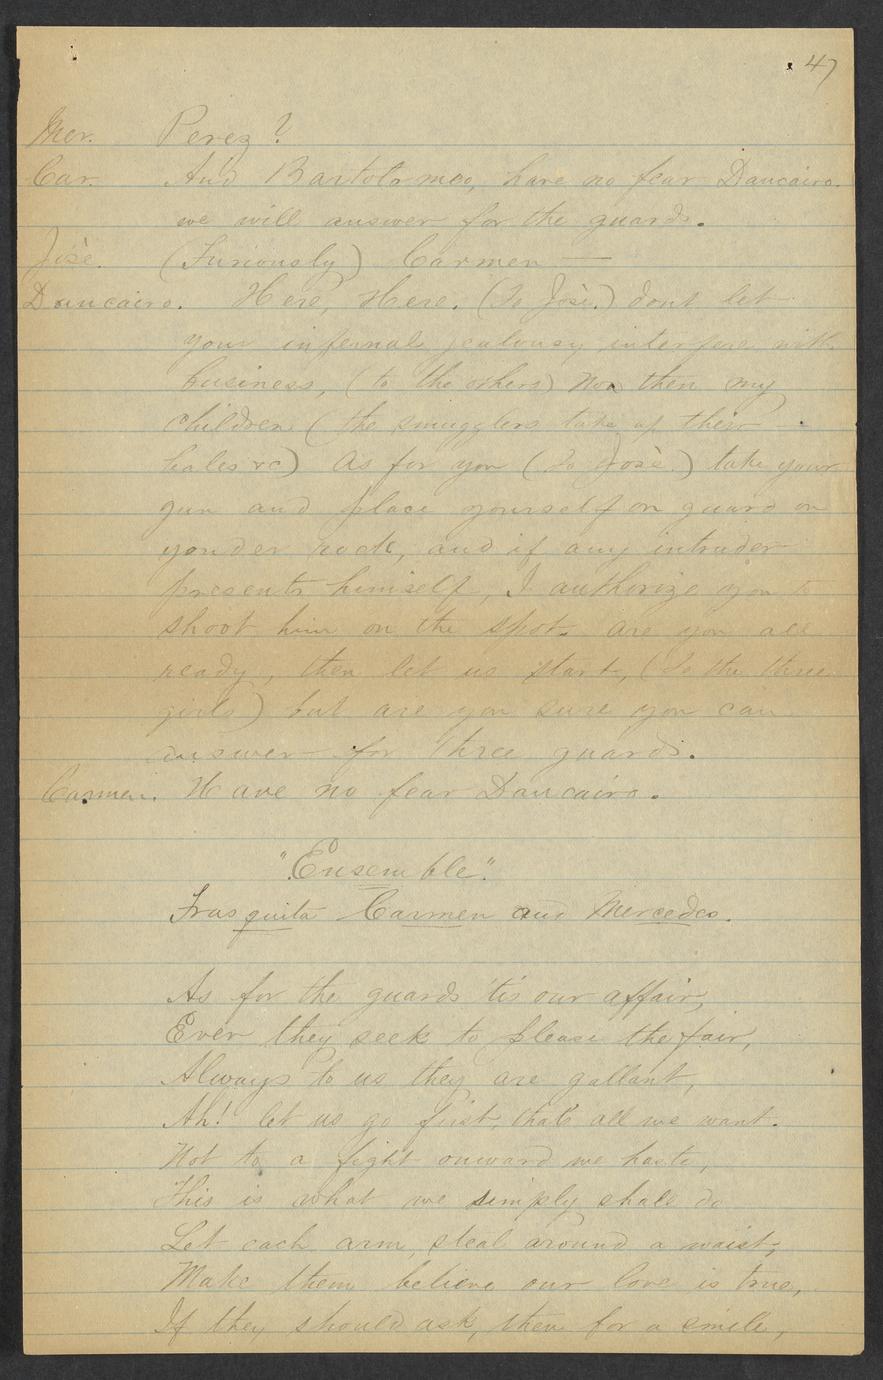 47
Mer. Perez?
Car. And Bartolomeo, have no fear Dancairo.
we will answer for the guards.
Josè. (Furiously) Carmen —
Dancairo. Here, Here. (To Josè.) dont let
your infernal jealousy interfere with
business, (to the others) Now then my
children (the smugglers take up their
bales &c) As for you (To Josè.) take your
gun and place yourself on guard on
yonder rock, and if any intruder
presents himself, I authorize you to
shoot him on the spot. are you all
ready, then let us start, (To the three
girls) but are you sure you can
answer for three guards.
Carmen. Have no fear Dancairo.
"Ensemble".
Frasquita Carmen and Mercedes.
As for the guards 'tis our affair,
Ever they seek to please the fair,
Always to us they are gallant,
Ah! let us go first, that's all we want.
Not to a fight onward we haste,
This is what we simply shall do
Let each arm, steal around a waist,
Make them believe our love is true,
If they should ask, then for a smile,